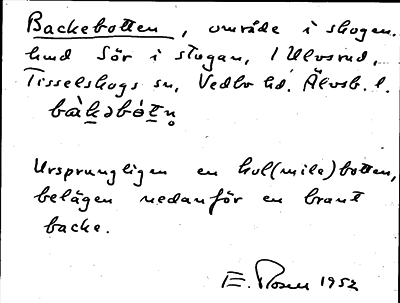 Backebotten, område i skogen
hmd Sör i stugan, 1 Ulvsrud,
Tisselskogs sn, Vedbo hd. Älvsb. l.
bàkəbót̯n̥
Ursprungligen en kol(mila)botten,
belägen nedanför en brant
backe.
E. Rosen 1952